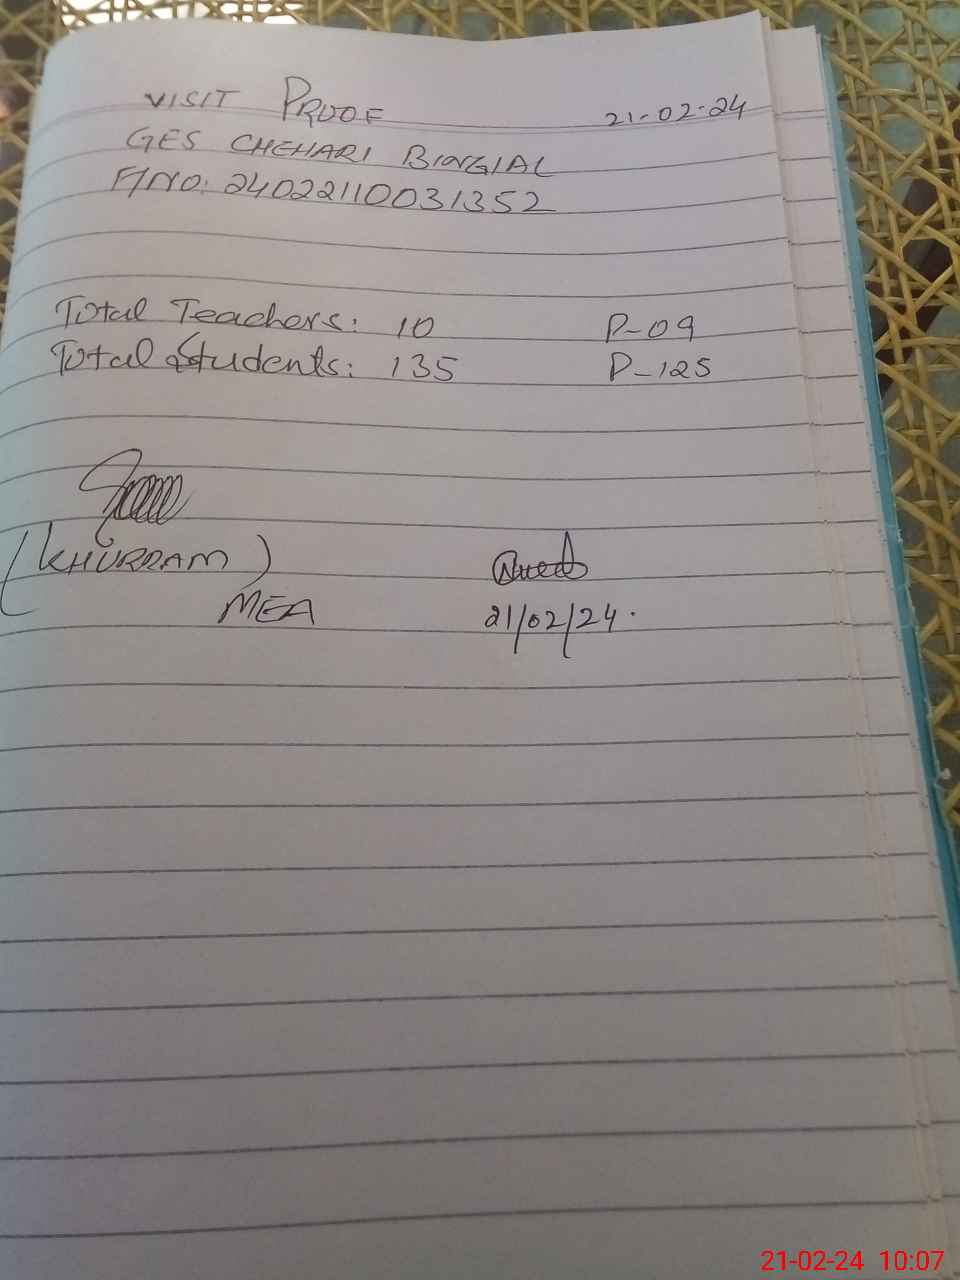 VISIT PROOF 21-02-24
GES CHEHARI BINGIAL
F/NO: 24022110031352
Total Teachers: 10 P-09
Total Students: 135 P-125
(KHURRAM)
MEA
21/02/24.
21-02-24 10:07